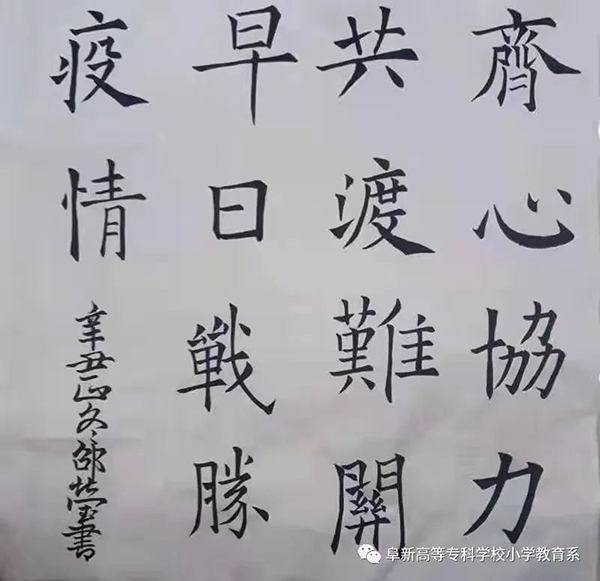 齊心協力
共渡難關
早日戰勝
疫情
辛丑正冬邵莹書
阜新高等专科学校小学教育系